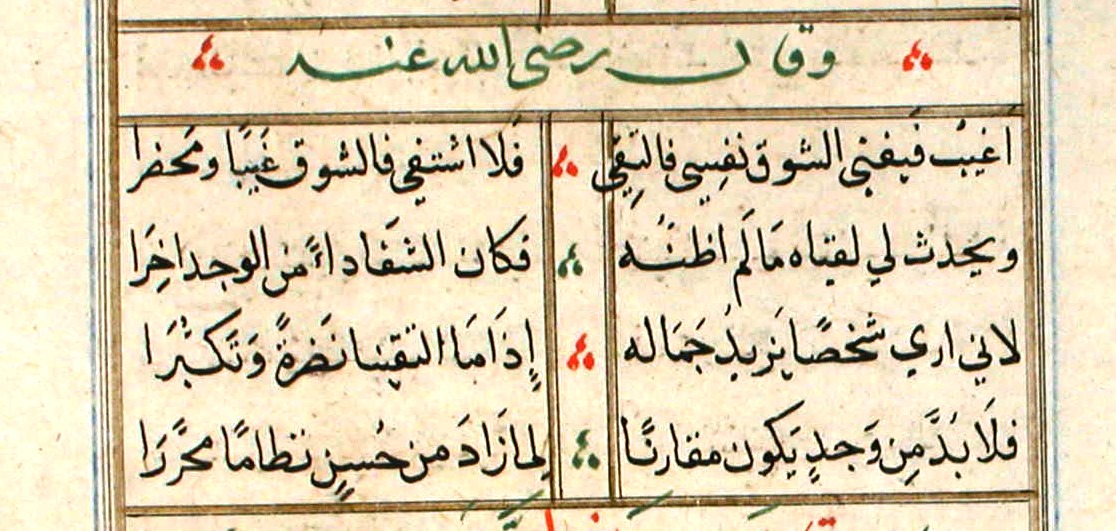 وقال رضى الله عنه
اغيبُ فَيفنى الشوق نفسِى فالتقِى فلا اشتفي فالشوق غَيبًا ومَحضرا
ويحدث لي لقياه مَا لَم اظنُنه فكان الشفَا داءً من الوجد اخِرَا
لاني اري شخصًا يَزيدُ جَمَاله إِذَا مَا التقينا نَضرةً وَتَكبُّرَا
فلَا بُدَّ مِن وَجدٍ يَكون مقارنًا لِما زَادَ من حُسنٍ نظامًا محرَّرَا